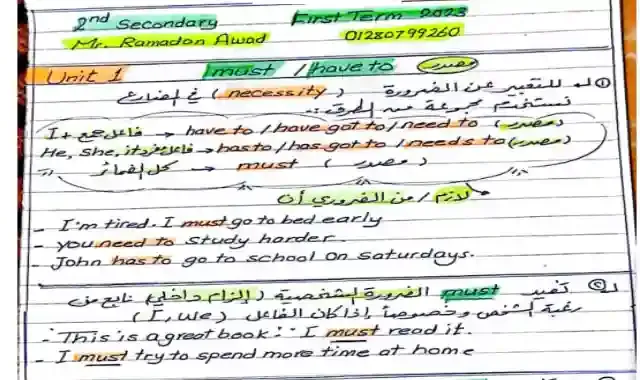 2nd Secondary First Term 2023
Mr. Ramadan Awad 01280799260
Unit 1 must / have to (مصدر)
① للتعبير عن الضرورة (necessity) في المضارع
نستخدم مجموعة من الطرق:
I + فاعل جمع → have to / have got to / need to (مصدر)
He, She, it, فاعل مفرد → has to / has got to / needs to (مصدر)
كل الضمائر → must (مصدر)
لازم / من الضروري أن
- I'm tired. I must go to bed early
- you need to study harder.
- John has to go to school on Saturdays.
② تفيد must الضرورة الشخصية (إلزام داخلي) نابع من
رغبة الشخص وخصوصاً إذا كان الفاعل (I, we)
- This is a great book: I must read it.
- I must try to spend more time at home